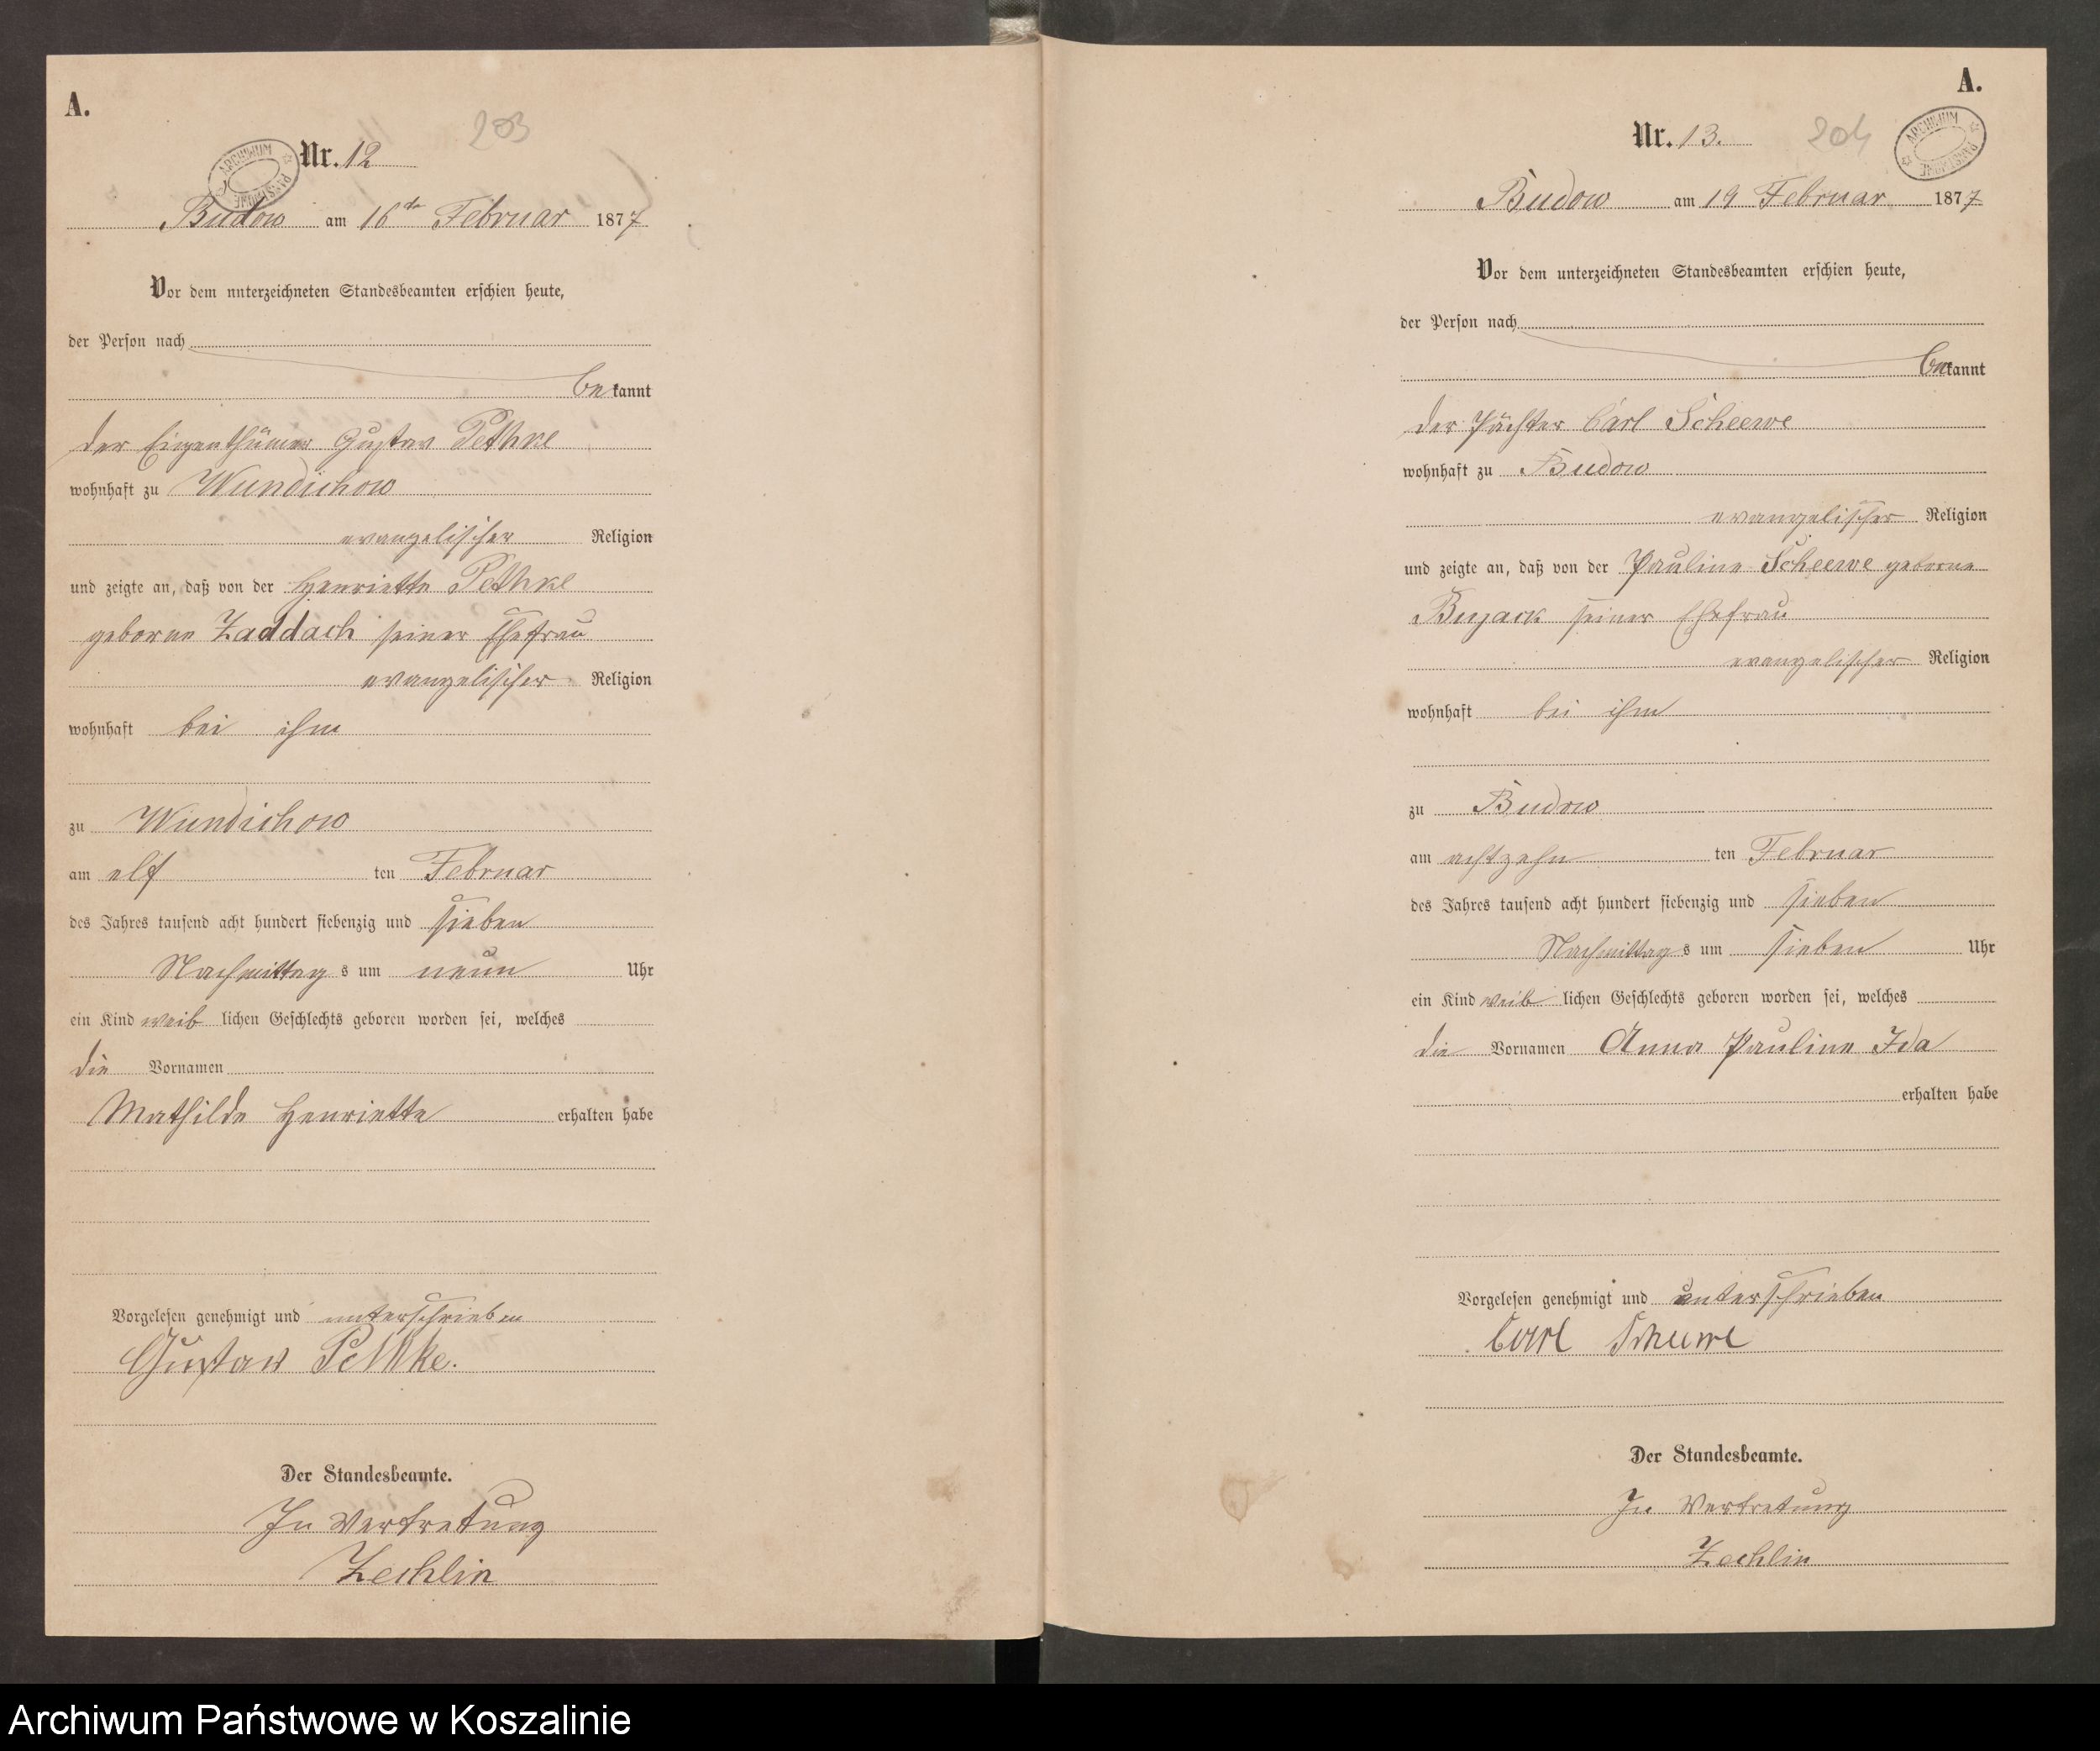 A.
203
Nr. 12
ARCHIWUM PAŃSTWOWE
Budow am 16ten Februar 1877
Vor dem nnterzeichneten Standesbeamten erschien heute,
der Person nach
bekannt
der Eigenthümer Gustav Pethke
wohnhaft zu Wundichow
evangelischer Religion
und zeigte an, daß von der Henriette Pethke
geborne Zaddach seiner Ehefrau
evangelischer Religion
wohnhaft bei ihm
zu Wundichow
am elf ten Februar
des Jahres tausend acht hundert siebenzig und sieben
Nachmittag s um neun Uhr
ein Kind weib lichen Geschlechts geboren worden sei, welches
die Vornamen
Mathilde Henriette erhalten habe
Vorgelesen genehmigt und unterschrieben
Gustav Pethke.
Der Standesbeamte.
In Vertretung
Zechlin
A.
Nr. 13.
204
ARCHIWUM PAŃSTWOWE
Budow am 19 Februar 1877
Vor dem unterzeichneten Standesbeamten erschien heute,
der Person nach
bekannt
der Pächter Carl Scheewe
wohnhaft zu Budow
evangelischer Religion
und zeigte an, daß von der Pauline Scheewe geborne
Bujack seiner Ehefrau
evangelischer Religion
wohnhaft bei ihm
zu Budow
am achtzehn ten Februar
des Jahres tausend acht hundert siebenzig und sieben
Nachmittag s um sieben Uhr
ein Kind weib lichen Geschlechts geboren worden sei, welches
die Vornamen Anna Pauline Ida
erhalten habe
Vorgelesen genehmigt und unterschrieben
Carl Scheewe
Der Standesbeamte.
In Vertretung
Zechlin
Archiwum Państwowe w Koszalinie